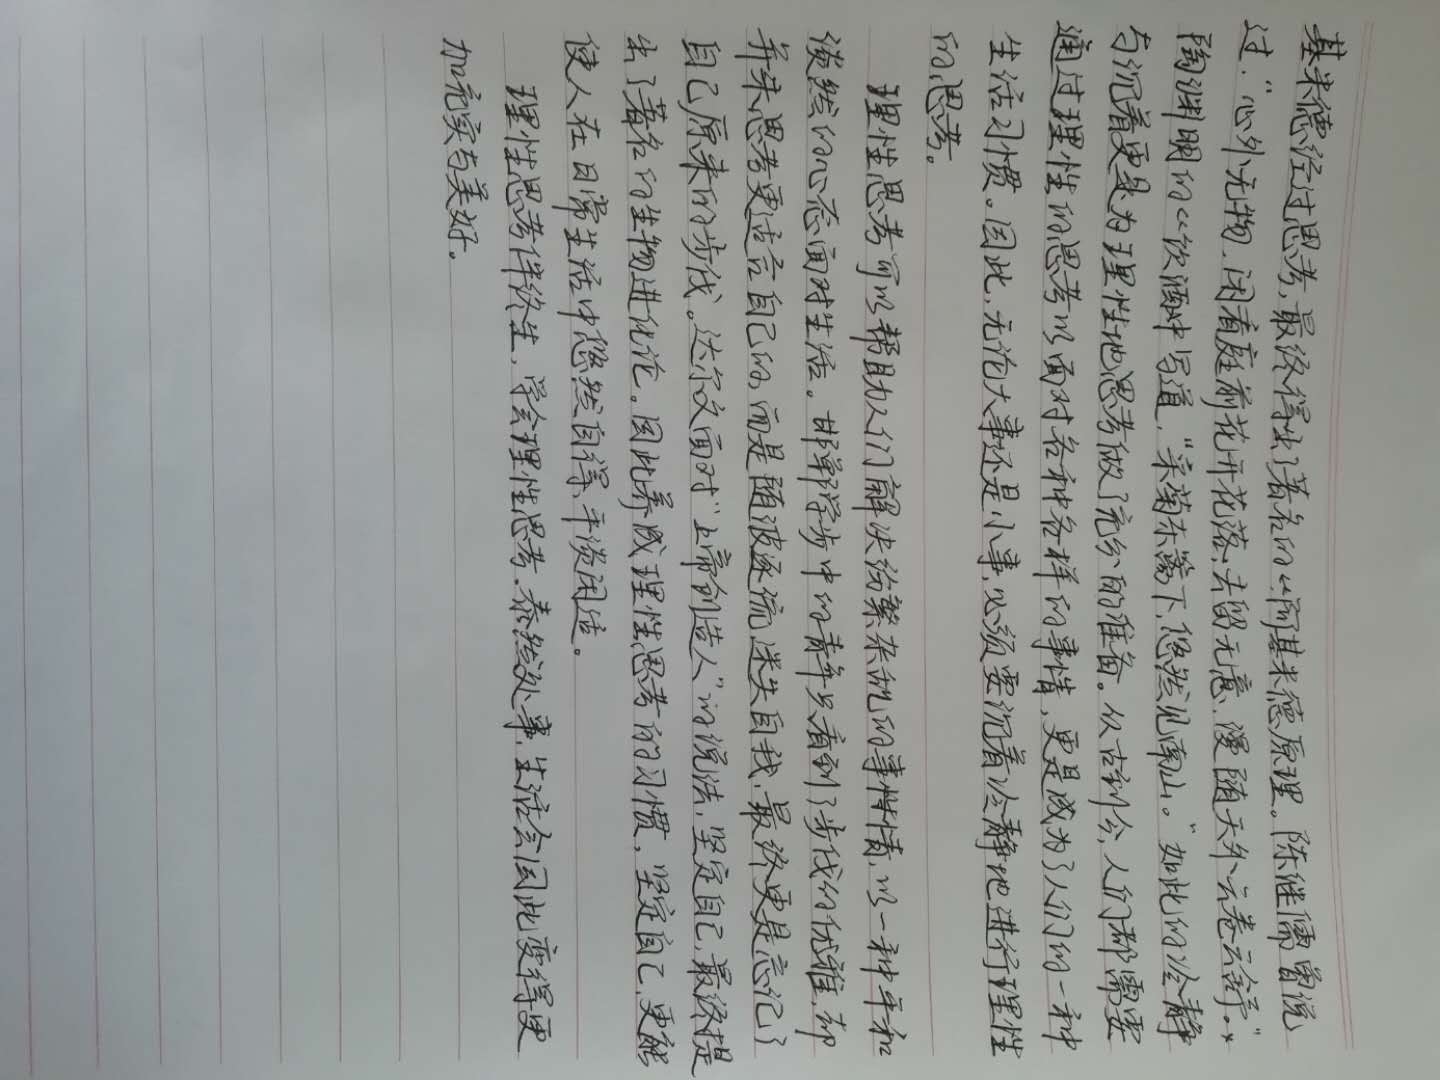 基米德经过思考，最终得出了著名的《阿基米德原理。陈继儒曾说
过，“心外无物，闲看庭前花开花落，去留无意，漫随天外云卷云舒。”
陶渊明的《饮酒中写道，“采菊东篱下，悠然见南山。”如此的冷静
与沉着更是为理性地思考做了充分的准备。从古到今，人们都需要
通过理性的思考以面对各种各样的事情，更是成为了人们的一种
生活习惯。因此，无论大事还是小事，必须要沉着冷静地进行理性
的思考。
理性思考可以帮助人们解决纷繁杂乱的事情，以一种平和
淡然的心态面对生活。邯郸学步中的青年只看到了步伐的优雅，却
并未思考更适合自己的，而是随波逐流，迷失自我，最终更是忘记了
自己原来的步伐。达尔文面对“上帝创造人”的说法，坚定自己，最终提
出了著名的生物进化论。因此养成理性思考的习惯，坚定自己，更能
使人在日常生活中悠然自得，平淡闲适。
理性思考伴终生，学会理性思考，泰然处事，生活会因此变得更
加充实与美好。